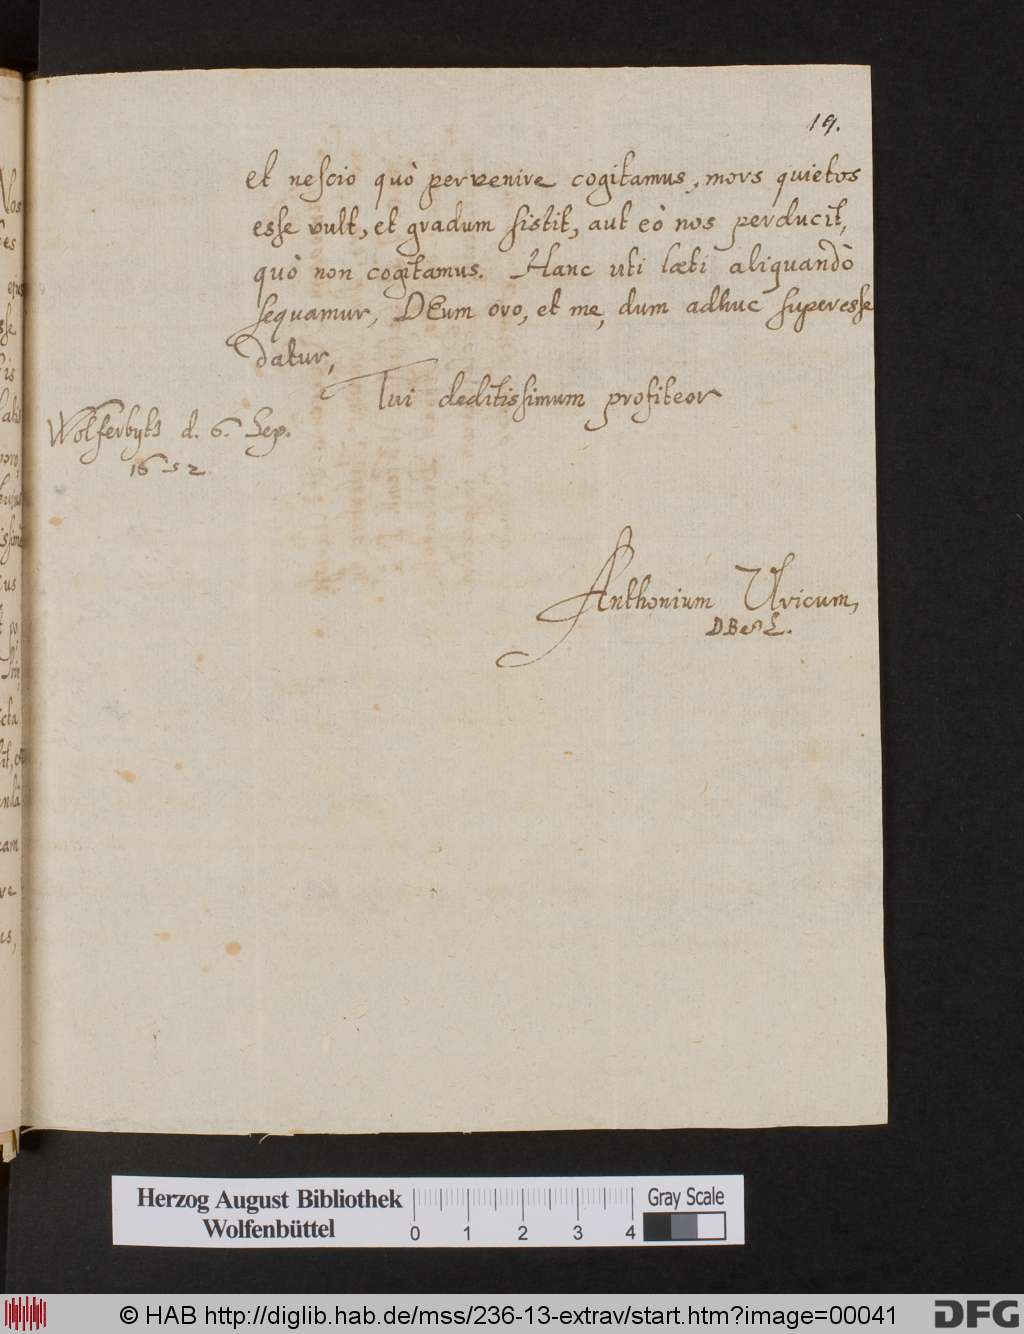 19.
et nescio quò pervenire cogitamus, mors quietos
esse vult, et gradum sistit, aut eò nos perducit,
quò non cogitamus. Hanc uti læti aliquandò
sequamur, DEum oro, et me, dum adhuc superesse
datur,
Tui deditissimum profiteor
Wolferbyts d. 6. Sep.
1652
Anthonium Ulricum,
Herzog August Bibliothek
Wolfenbüttel
0 1 2 3 4
Gray Scale
© HAB http://diglib.hab.de/mss/236-13-extrav/start.htm?image=00041
DFG